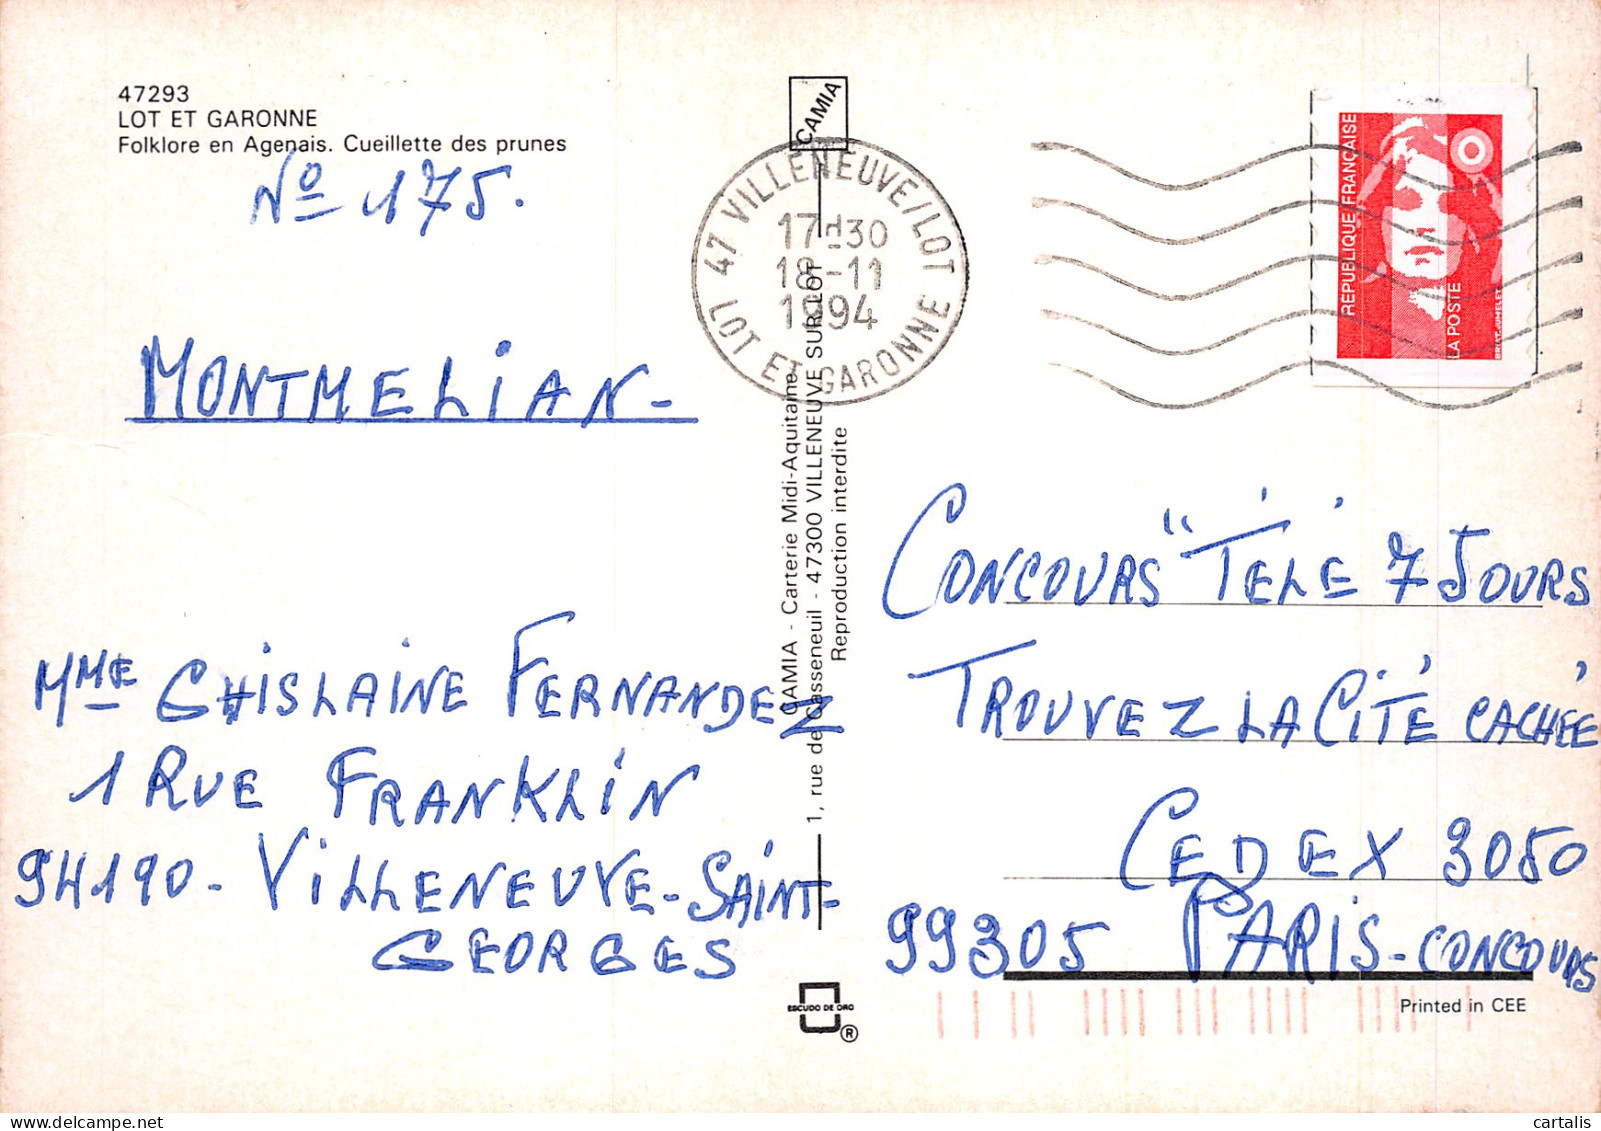 47293
LOT ET GARONNE
Folklore en Agenais. Cueillette des prunes
Nº 175.
MONTMELIAN-
MME GHISLAINE FERNANDEZ
1 RUE FRANKLIN
94190 - VILLENEUVE-SAINT-
GEORGES
CAMIA
47 VILLENEUVE/LOT
17H30
18-11
1994
LOT ET GARONNE
CAMIA - Carterie Midi-Aquitaine
1, rue de Casseneuil - 47300 VILLENEUVE SUR LOT
Reproduction interdite
ESCUDO DE ORO
®
RÉPUBLIQUE FRANÇAISE
LA POSTE
CONCOURS "TÉLÉ 7 JOURS
TROUVEZ LA CITÉ CACHÉE
CEDEX 3050
99305 PARIS-CONCOURS
Printed in CEE
cartalis
www.delcampe.net